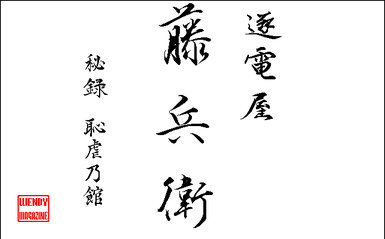 遂電屋
藤兵衛
秘録 恥虐乃館
WENDY
MAGAZINE